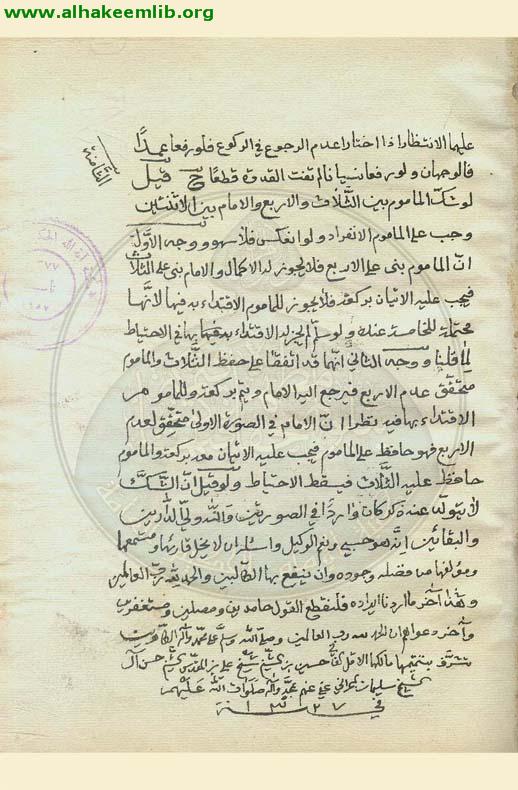 www.alhakeemlib.org
عليهما الانتظار اذا اختارا عدم الرجوع في الركوع فلو رفعا عمدًا
فالوجهان ولو رفعا نسيانا لم تفت القدوة قطعًا قيل
لو شك الماموم بين الثلاث والاربع والامام بين الاثنتين
وجب على الماموم الانفراد ولو انعكس فلا سهو ووجه الاول
ان الماموم بنى على الاربع فلا يجوز له الاكمال والامام بنى على الثلاث
فيجب عليه الاتيان بركعة فلا يجوز للماموم الاقتداء به فيها لانها
محتملة للخامسة عنده ولو سلم لم يجز له الاقتداء به فيها في الاحتياط
لما قلنا ووجه الثاني انهما قد اتفقا على حفظ الثلاث والماموم
متحقق عدم الاربع فيرجع اليه الامام ويتم بركعة وللماموم
الاقتداء بها فيه نظر ا ن الامام في الصورة الاولى متحقق لعدم
الاربع فهو حافظ على الماموم فيجب عليه الاتيان معه بركعة والماموم
حافظ عليه الثلاث فيسقط الاحتياط ولو قيل ان الشك
لا يتولد عنه ذكر كان واردًا في الصورتين والله ولي
انه هو حسبي ونعم الوكيل واسئله ان لا يخل قارئها ومستمعها
ومولفها من فضله وجوده وان ينفع بها الطالبين والحمد لله رب العالمين
وهذا آخر ما اردنا ايراده فلنقطع القول حامدين ومصلين ومستغفرين
وآخر دعواهم ان الحمد لله رب العالمين وصلى الله وسلم على محمد وآله الطاهرين
تشرف بتتميمها مالكها الاقل حسين بن الشيخ علي بن الشيخ حسن آل
الشيخ سليمان البحراني عفي عنهم بمحمد وآله صلوات الله عليهم
في سنة
الثامنة